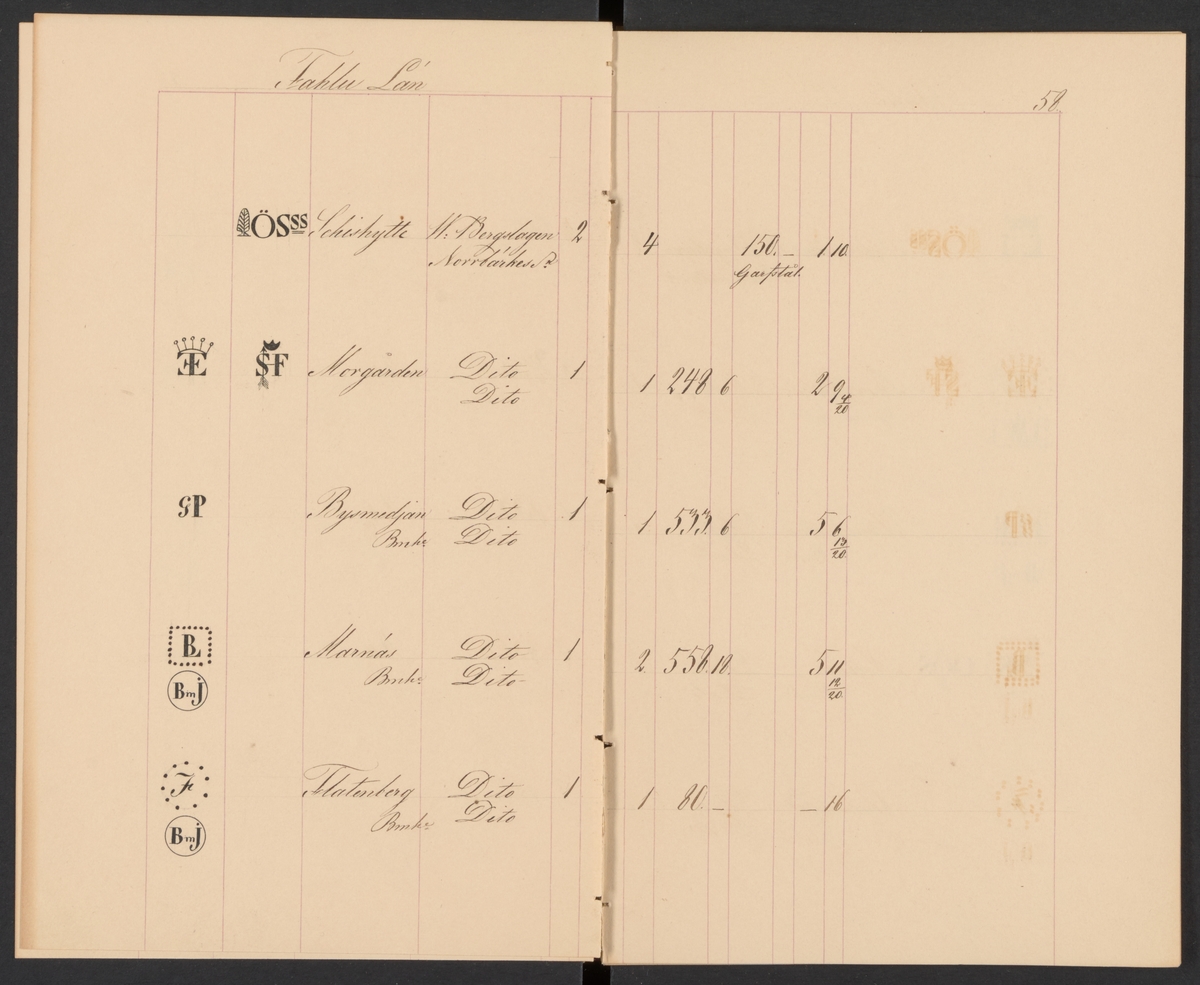 Fahlu Län
58.
ÖSSS Schishytte W: Bergslagen 2 4 150. — 1 10.
Norrbärkes Sn Garfstål.
Æ SF Morgården Dito 1 1 248 6 2 9 4/20
Dito
GP Bysmedjan Dito 1 1 533 6 5 6 13/20
Bmk Dito
BL Marnäs Dito 1 2. 558. 10. 5 11 12/20
BmJ Bmk Dito
F Flatenberg Dito 1 1 80. — — 16
BmJ Bmk Dito